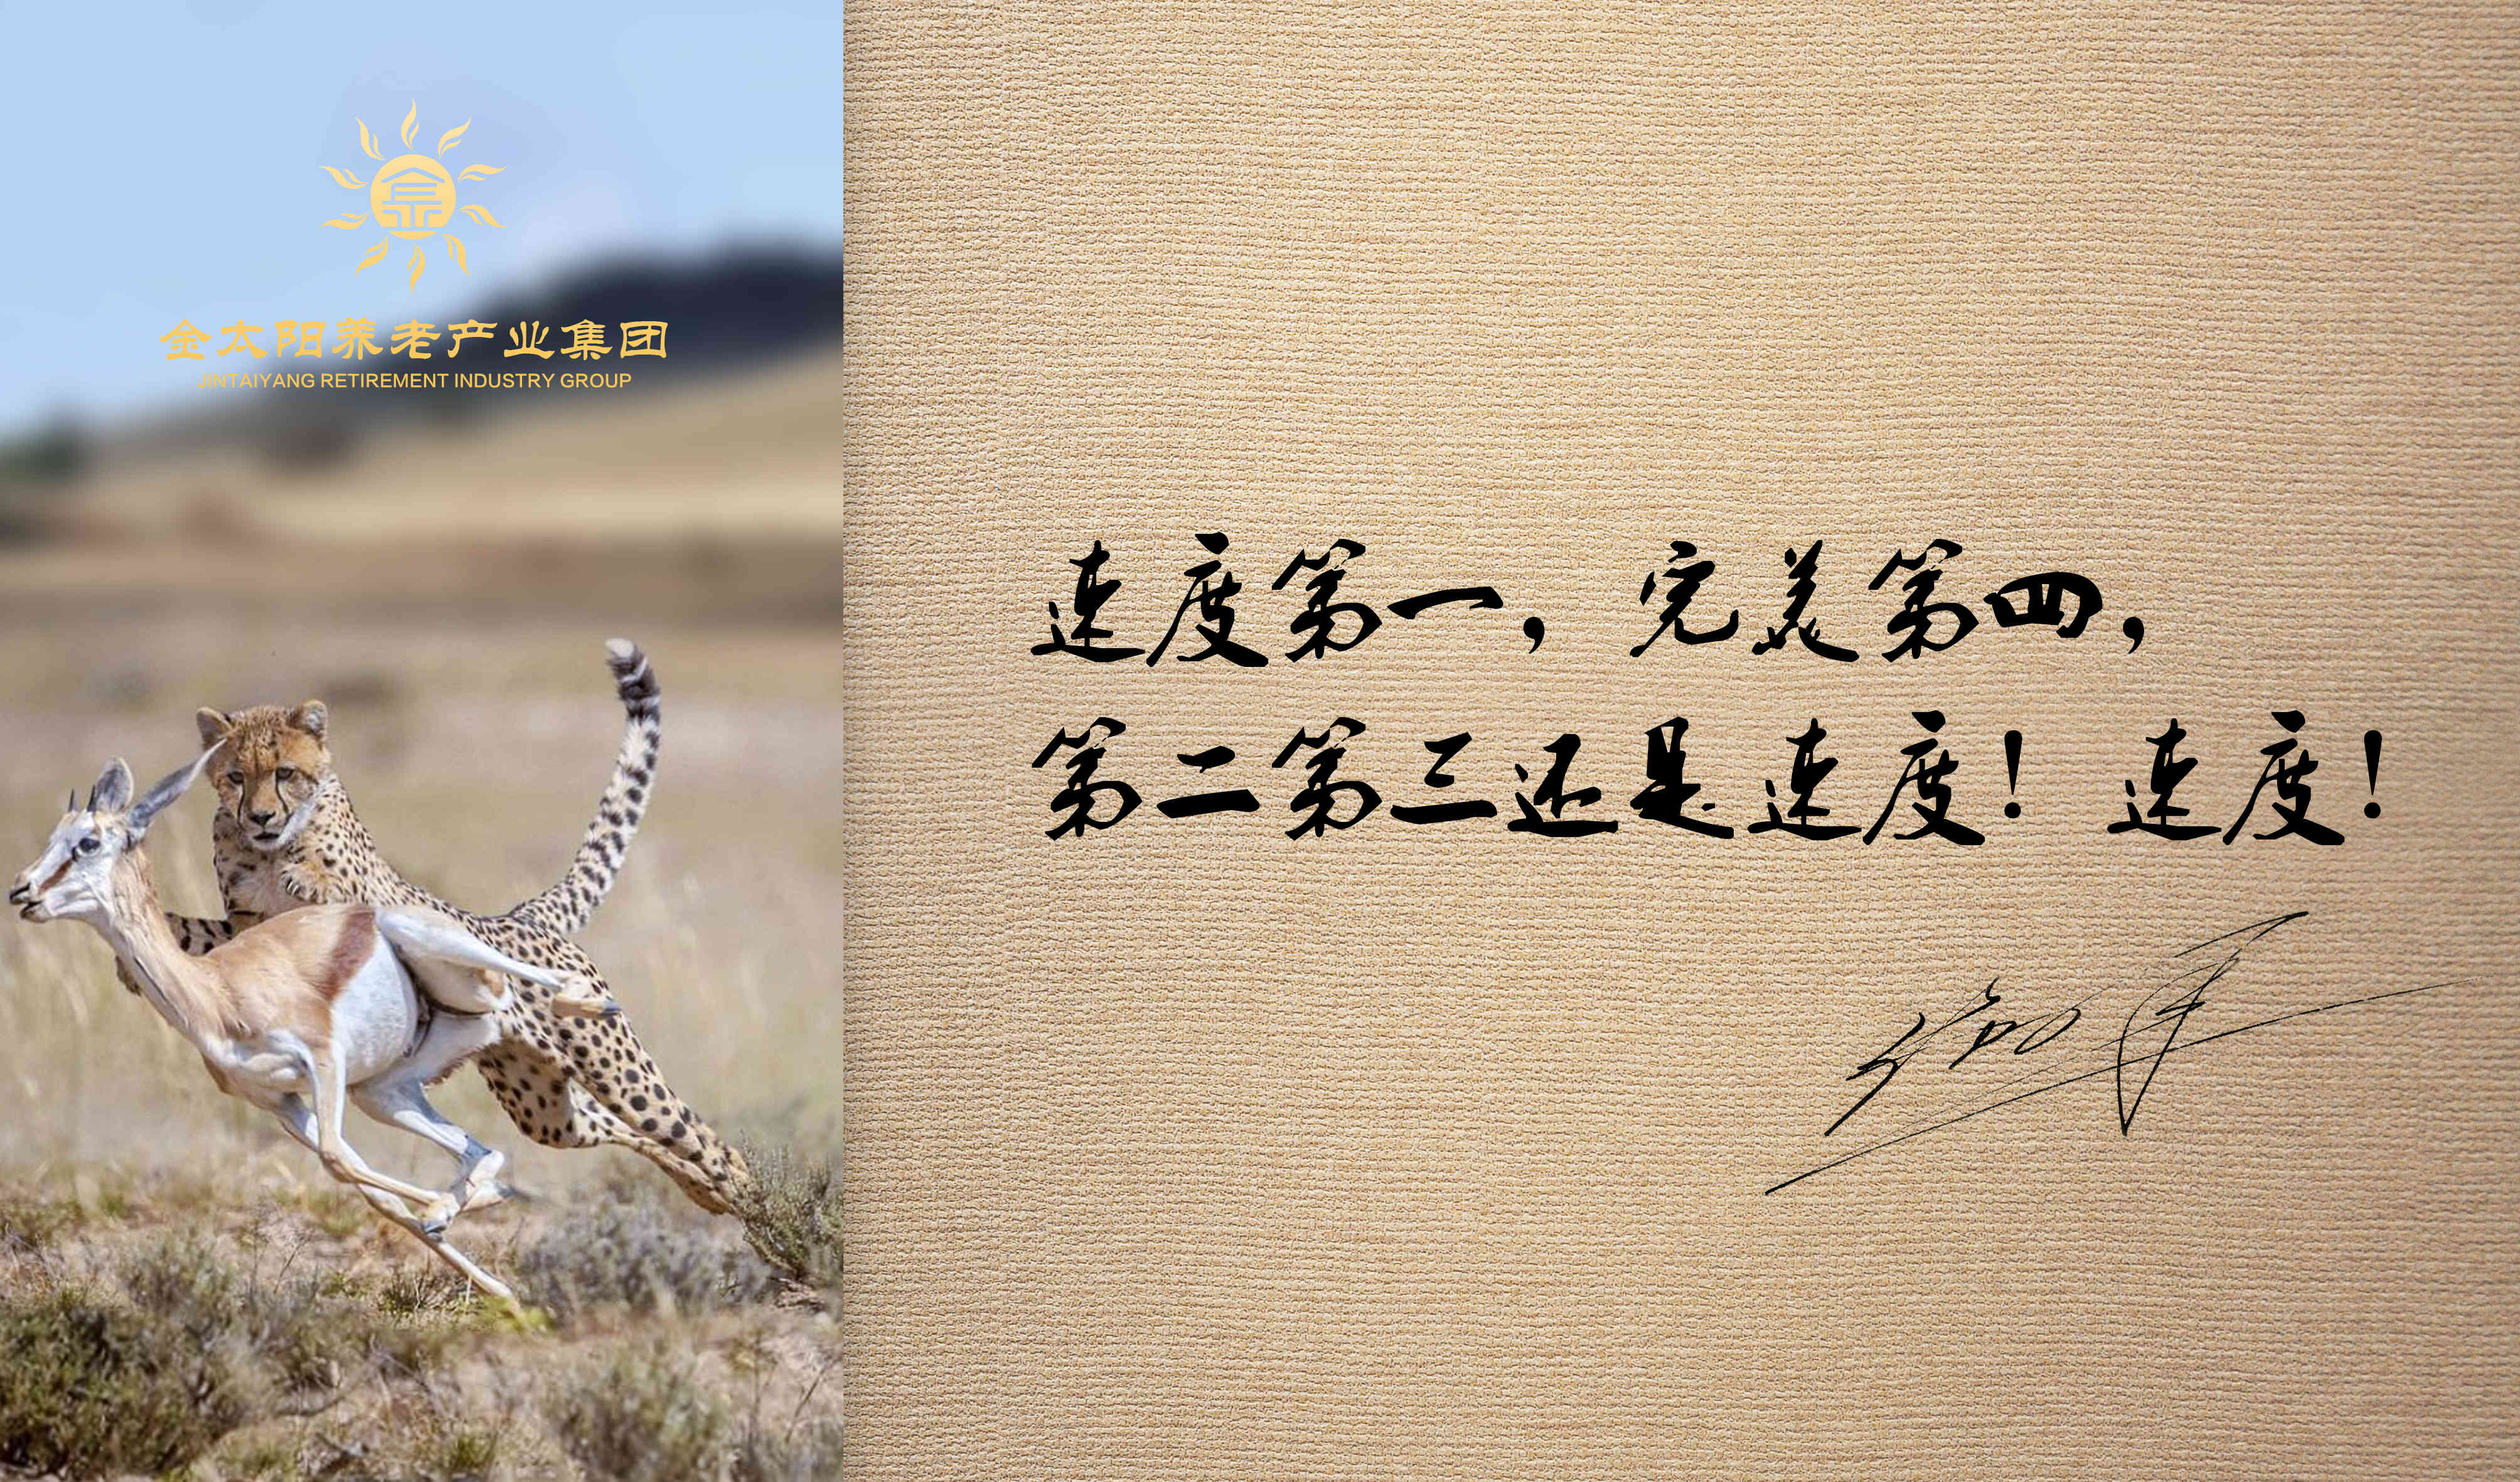 金太阳养老产业集团
JINTAIYANG RETIREMENT INDUSTRY GROUP
速度第一，完美第四，
第二第三还是速度！速度！